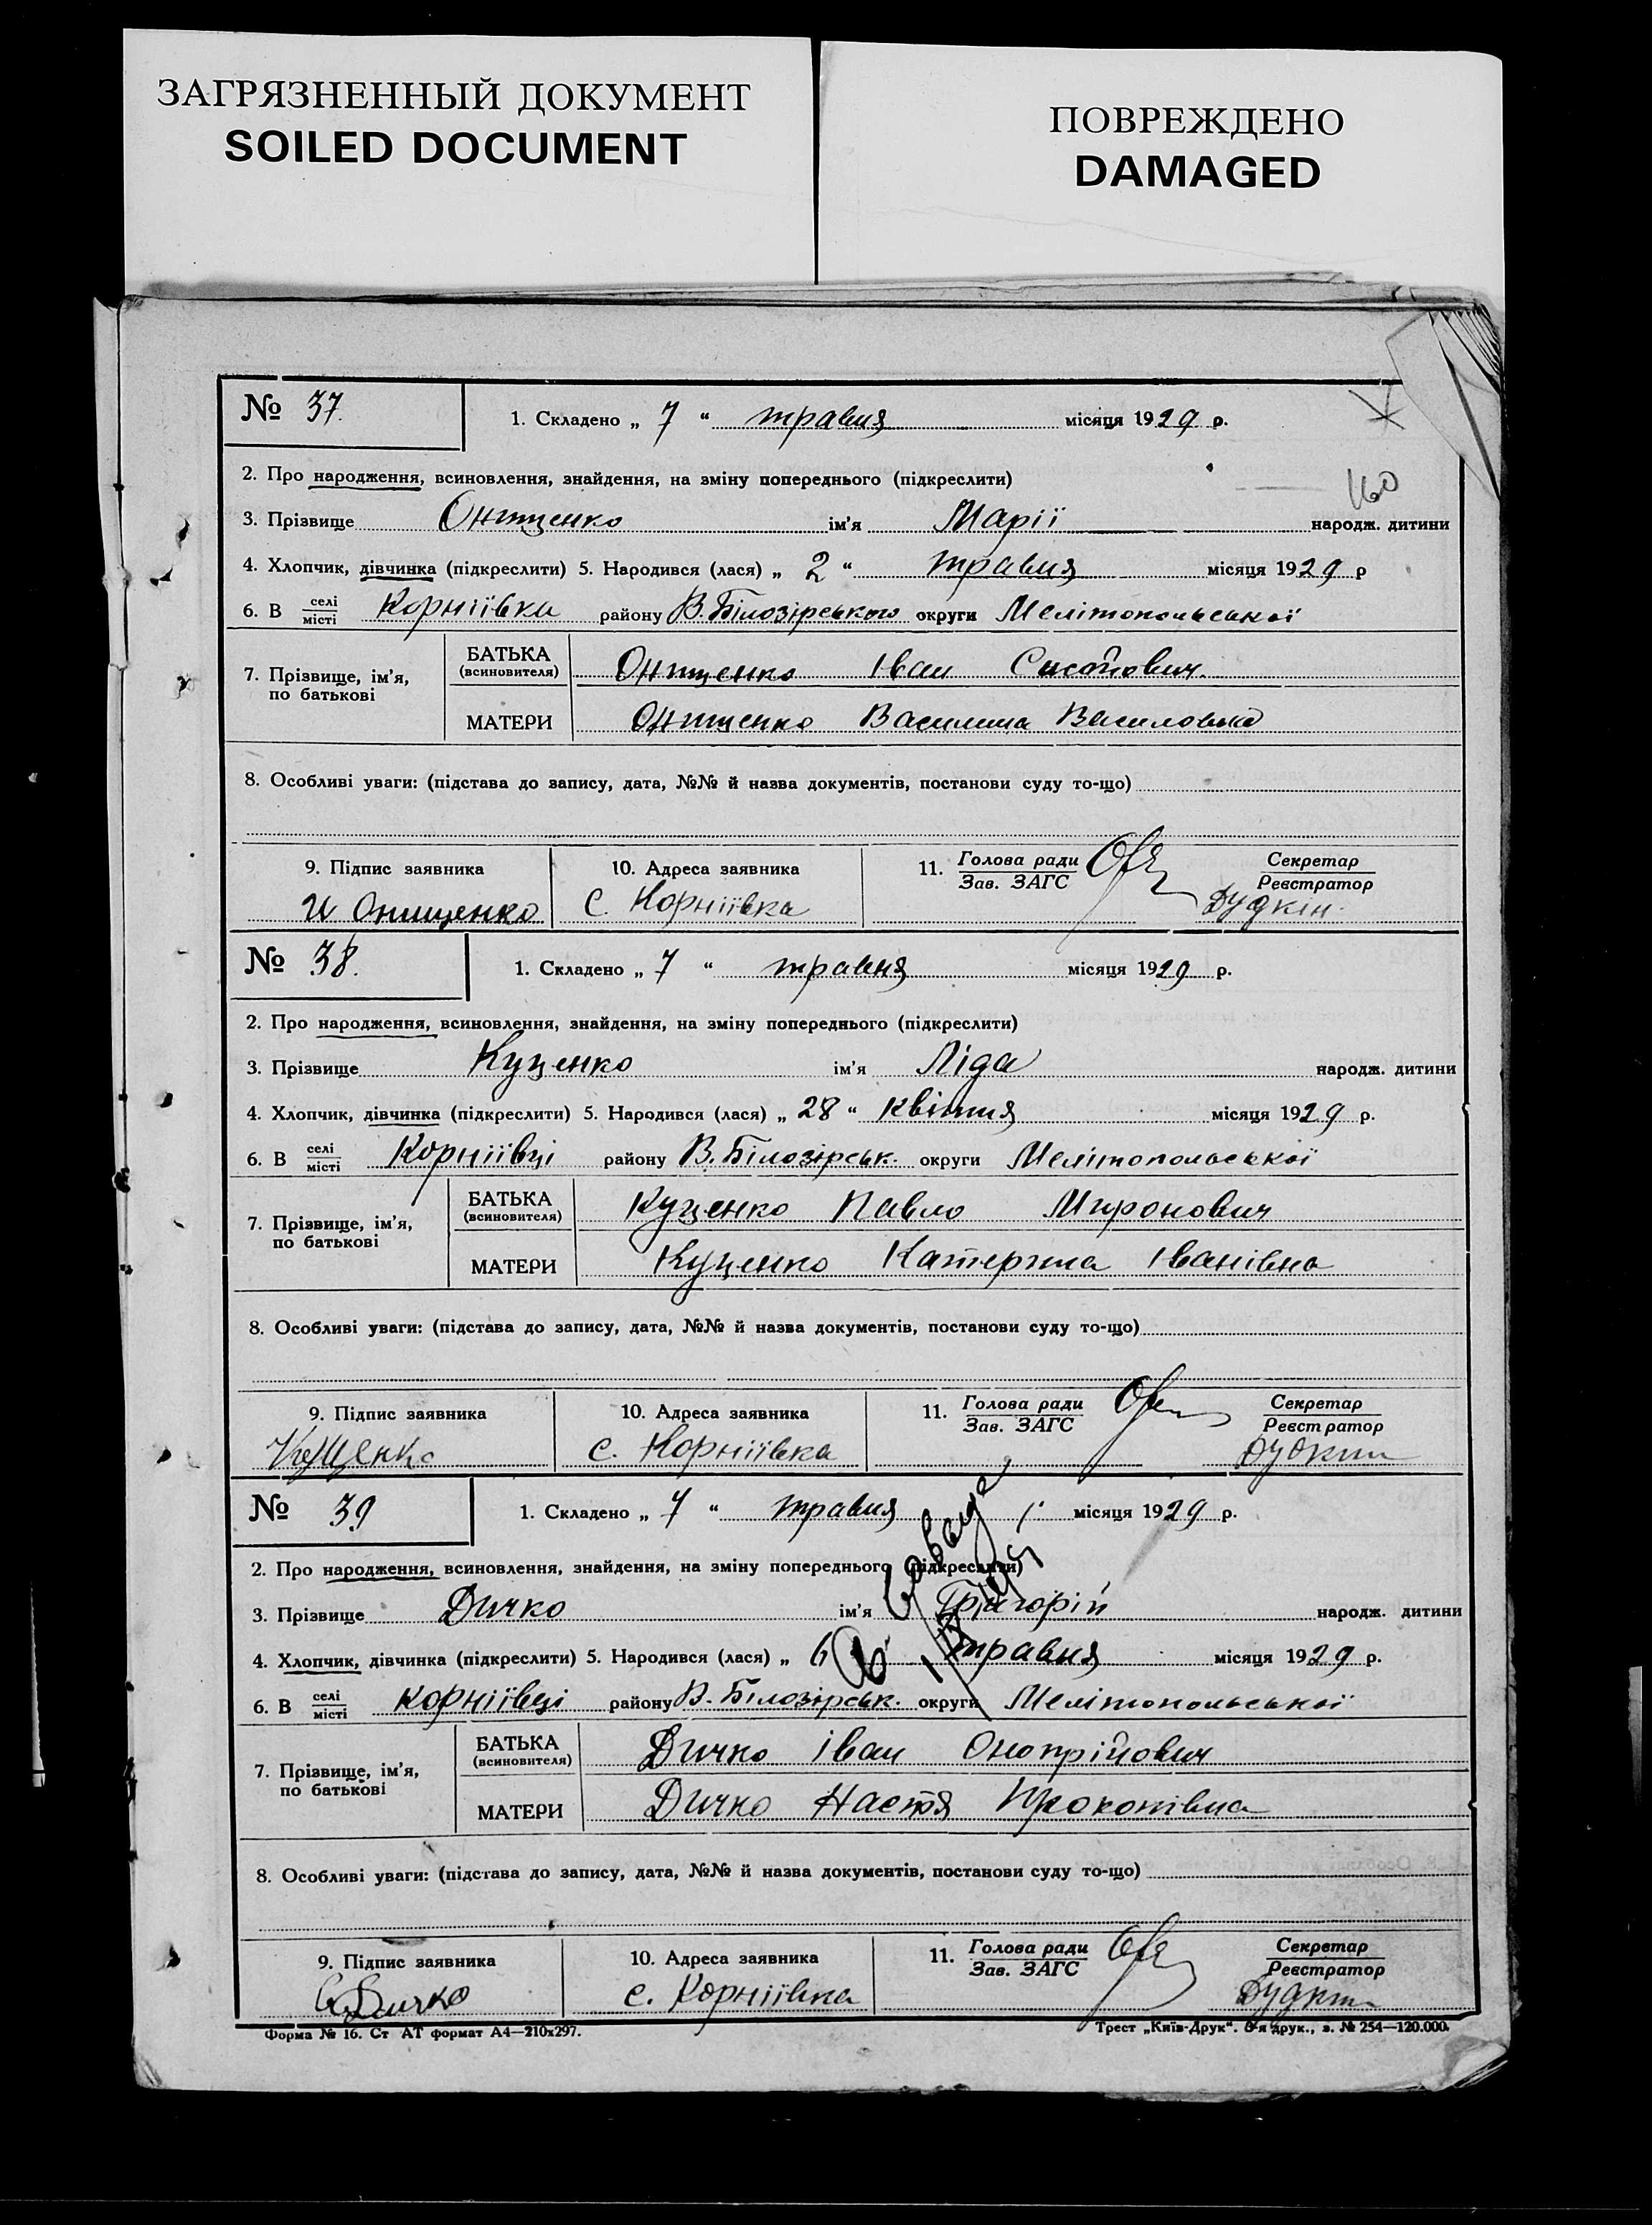 ЗАГРЯЗНЕННЫЙ ДОКУМЕНТ
SOILED DOCUMENT
ПОВРЕЖДЕНО
DAMAGED
№ 37. 1. Складено „ 7 “ травня місяця 1929 р.
2. Про народження, всиновлення, знайдення, на зміну попереднього (підкреслити)
160
3. Прізвище Онищенко ім'я Марії народж. дитини
4. Хлопчик, дівчинка (підкреслити) 5. Народився (лася) „ 2 “ травня місяця 1929 р
6. В селі місті Корніївка району В. Білозірського округи Мелітопольської
7. Прізвище, ім'я, по батькові БАТЬКА (всиновителя) Онищенко Іван Сисойович.
МАТЕРИ Онищенко Василина Василовна
8. Особливі уваги: (підстава до запису, дата, №№ й назва документів, постанови суду то-що)
9. Підпис заявника 10. Адреса заявника 11. Голова ради Зав. ЗАГС Секретар Реєстратор
И Онищенко С. Корніївка Дудкін
№ 38. 1. Складено „ 7 “ травня місяця 1929 р.
2. Про народження, всиновлення, знайдення, на зміну попереднього (підкреслити)
3. Прізвище Куценко ім'я Ліда народж. дитини
4. Хлопчик, дівчинка (підкреслити) 5. Народився (лася) „ 28 “ квітня місяця 1929 р.
6. В селі місті Корніївці району В. Білозірськ. округи Мелітопольської
7. Прізвище, ім'я, по батькові БАТЬКА (всиновителя) Куценко Павло Миронович
МАТЕРИ Куценко Катерина Іванівна
8. Особливі уваги: (підстава до запису, дата, №№ й назва документів, постанови суду то-що)
9. Підпис заявника 10. Адреса заявника 11. Голова ради Зав. ЗАГС Секретар Реєстратор
Куценко с. Корніївка Дудкин
№ 39 1. Складено „ 7 “ травня місяця 1929 р.
2. Про народження, всиновлення, знайдення, на зміну попереднього (підкреслити)
3. Прізвище Дичко ім'я Григорій народж. дитини
4. Хлопчик, дівчинка (підкреслити) 5. Народився (лася) „ 6 травня місяця 1929 р.
6. В селі місті Корніївці району В. Білозірськ. округи Мелітопольської
7. Прізвище, ім'я, по батькові БАТЬКА (всиновителя) Дичко Іван Онопрійович
МАТЕРИ Дичко Настя Прокопівна
8. Особливі уваги: (підстава до запису, дата, №№ й назва документів, постанови суду то-що)
9. Підпис заявника 10. Адреса заявника 11. Голова ради Зав. ЗАГС Секретар Реєстратор
Дичко с. Корніївка Дудкин
Форма № 16. Ст АТ формат А4—210х297. Трест „Київ-Друк“. друк., з. № 254—120.000.